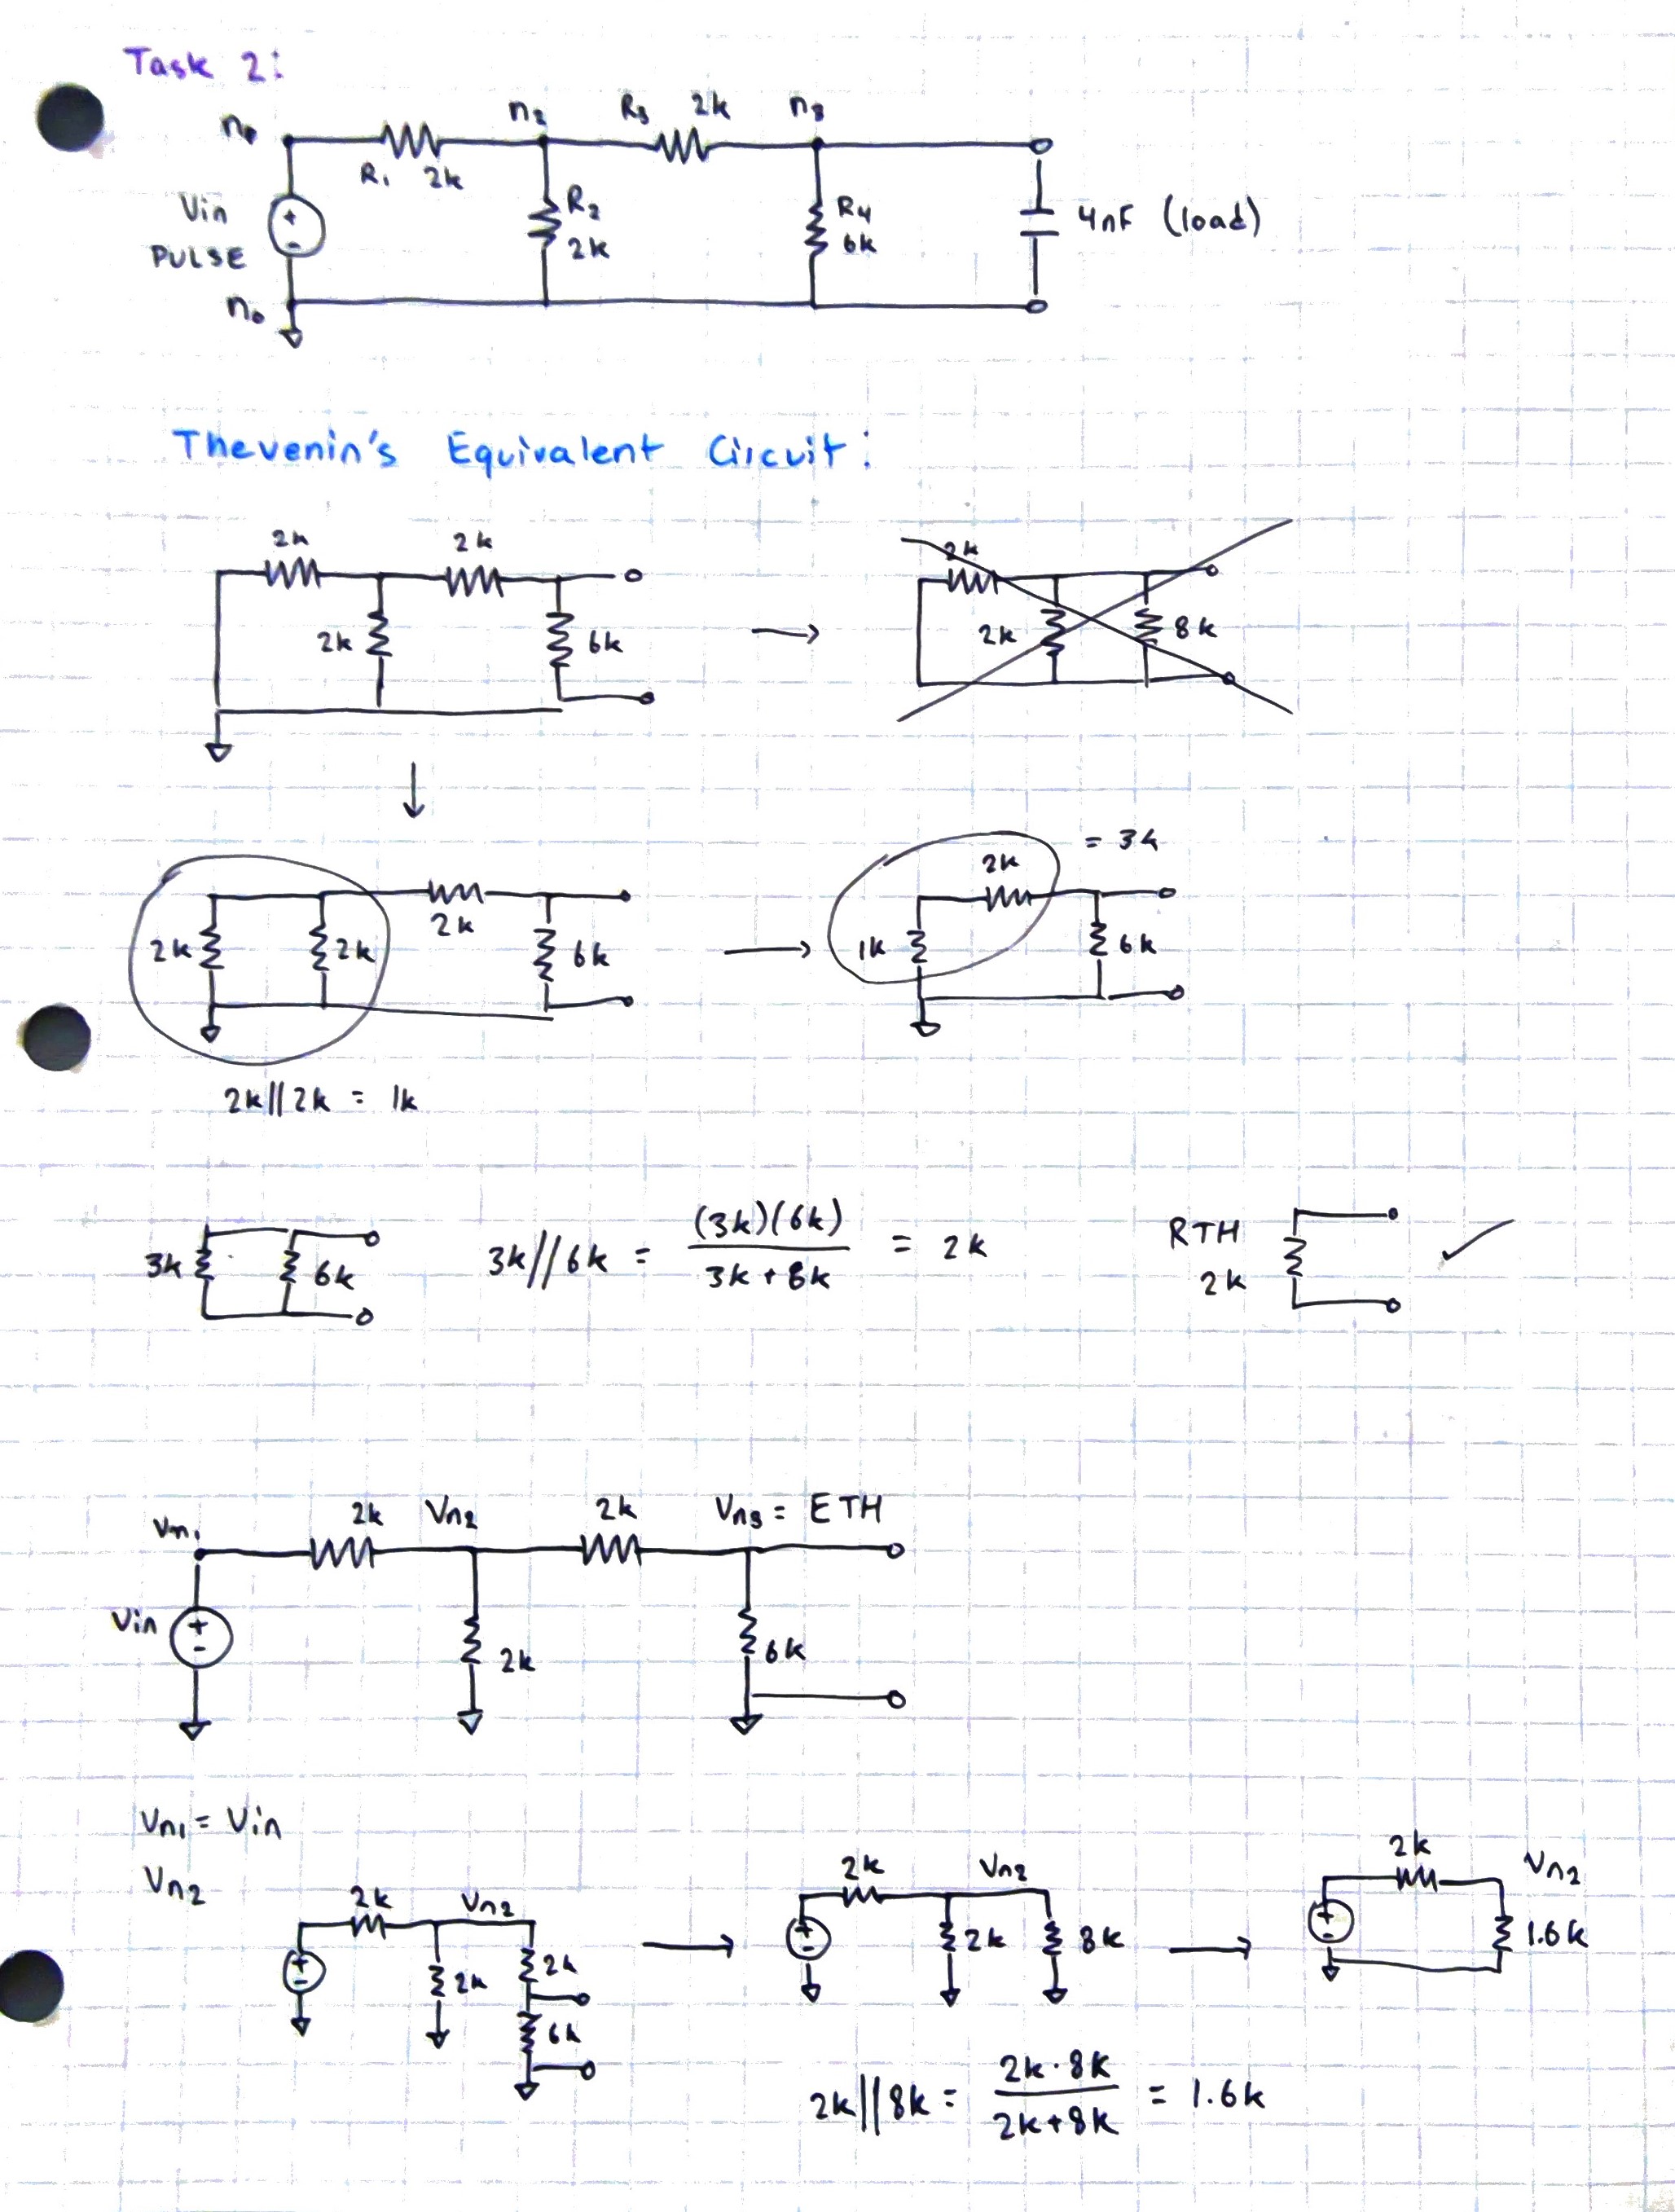 Task 2:
n₁ n₂ R₃ 2k n₃
R₁ 2k
Vin
PULSE
+
-
R₂
2k
R4
6k
4nF (load)
n₀
Thevenin's Equivalent Circuit:
2k 2k 2k
2k 6k → 2k 8k
↓
= 3k
2k
2k 2k 2k 6k → 1k 6k
2k||2k = 1k
3k 6k 3k//6k = (3k)(6k) / 3k + 6k = 2k RTH
2k ✓
Vn₁ 2k Vn₂ 2k Vn₃ = ETH
Vin + - 2k 6k
Vn₁ = Vin
Vn₂
2k Vn₂ 2k Vn₂ 2k Vn₂
+ - 2k 2k 6k → + - 2k 8k → + - 1.6k
2k||8k = 2k·8k / 2k+8k = 1.6k